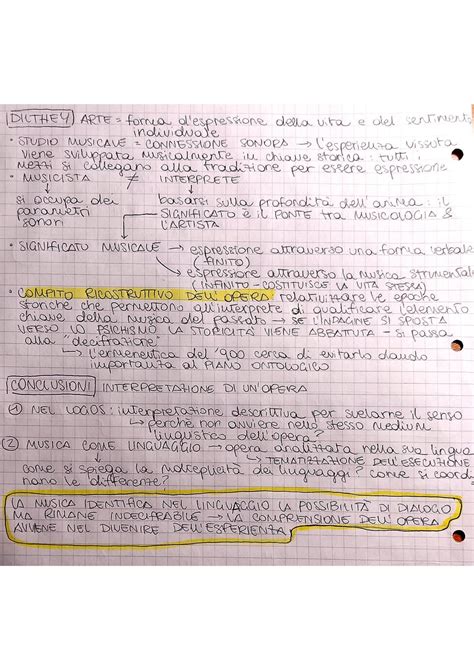 DILTHEY ARTE = forma d'espressione della vita e del sentiment
individuale
• STUDIO MUSICALE = CONNESSIONE SONORA → l'esperienza vissuta
viene sviluppata musicalmente in chiave storica : tutti i
mezzi si collegano alla tradizione per essere espressione
• MUSICISTA ≠ INTERPRETE
si occupa dei basarsi sulla profondità dell'anima : il
parametri SIGNIFICATO è IL PONTE TRA MUSICOLOGIA &
sonori L'ARTISTA
• SIGNIFICATO MUSICALE → espressione attraverso una forma verbale
(FINITO)
espressione attraverso la musica strumentale
(INFINITO - COSTITUISCE LA VITA STESSA)
• COMPITO RICOSTRUTTIVO DELL'OPERA relativizzare le epoche
storiche che permettono all'interprete di qualificare l'elemento
chiave della musica del passato → SE L'INDAGINE SI SPOSTA
VERSO LO PSICHISMO LA STORICITÀ VIENE ABBATTUTA - si passa
alla "decifrazione"
↳ l'ermeneutica del '900 cerca di evitarlo dando
importanza al PIANO ONTOLOGICO
CONCLUSIONI INTERPRETAZIONE DI UN'OPERA
① NEL LOGOS : interpretazione descrittiva per svelarne il senso
↳ perché non avviene nello stesso medium
linguistico dell'opera?
② MUSICA COME LINGUAGGIO → opera analizzata nella sua lingua
↳ TEMATIZZAZIONE DELL'ESECUZIONE
come si spiega la molteplicità dei linguaggi? come si coordi
nano le differenze?
LA MUSICA IDENTIFICA NEL LINGUAGGIO LA POSSIBILITÀ DI DIALOGO
MA RIMANE INDECIFRABILE → LA COMPRENSIONE DELL'OPERA
AVVIENE NEL DIVENIRE DELL'ESPERIENZA